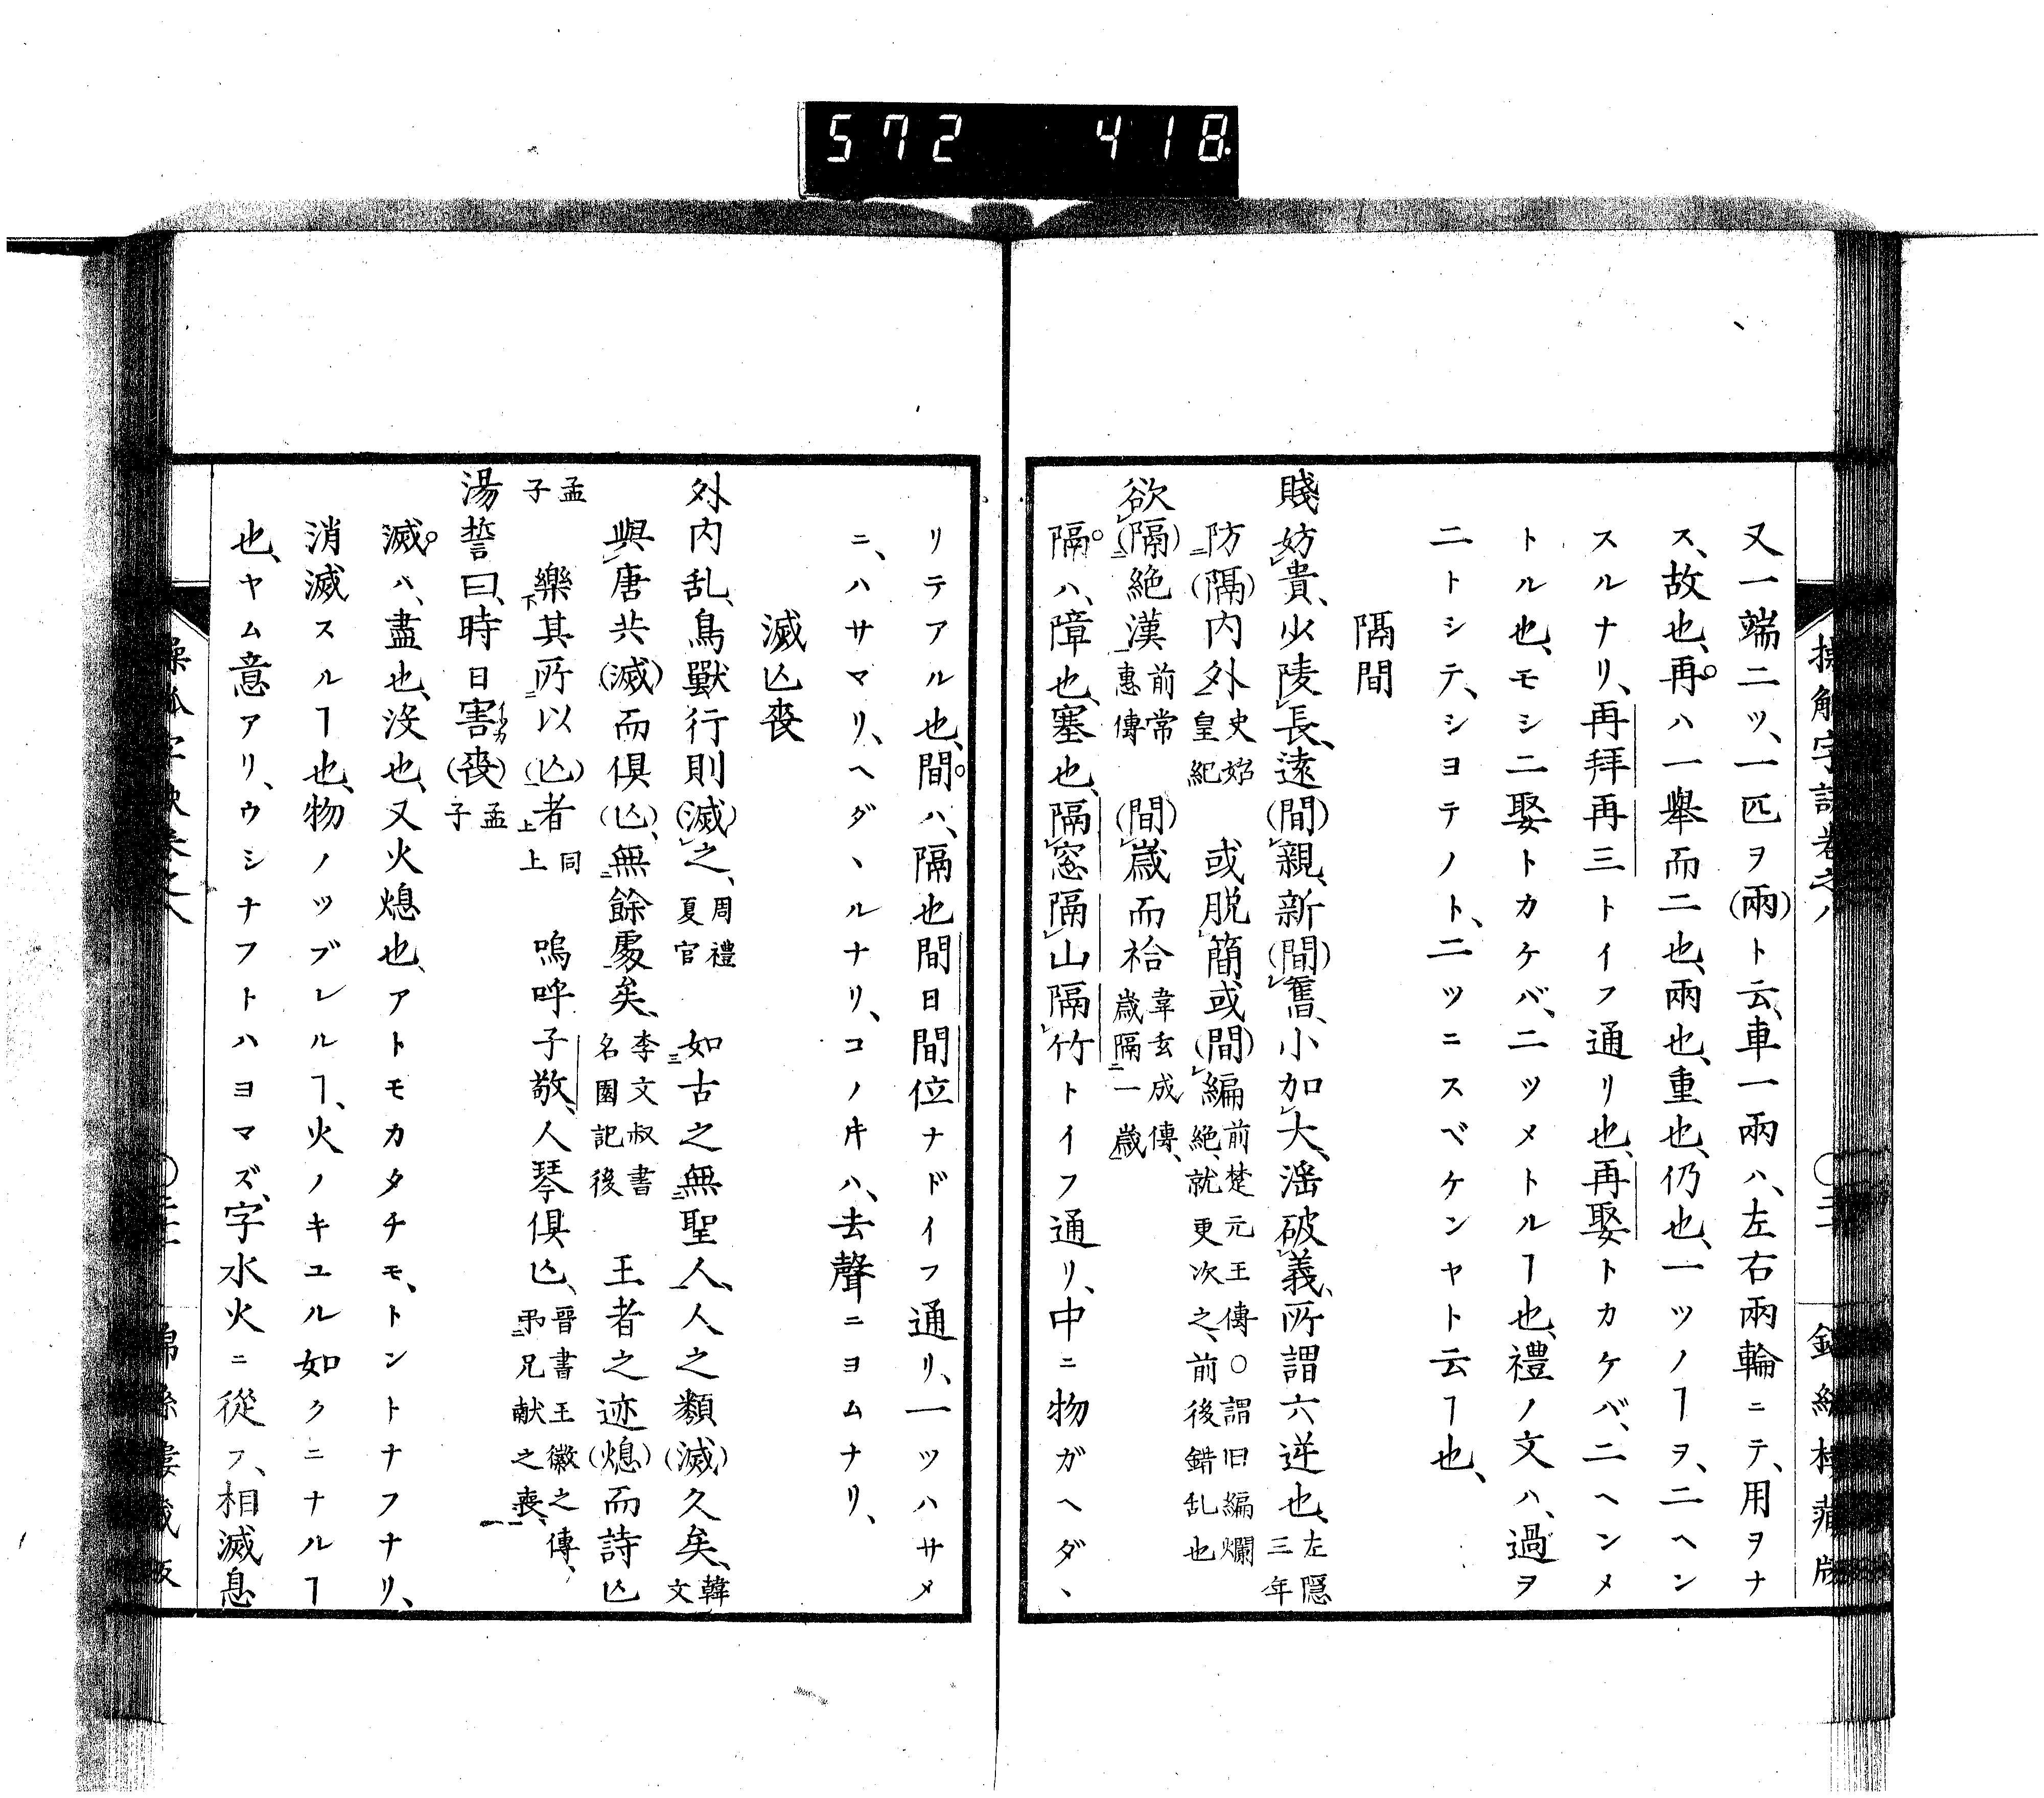 572 418
又一端二ツ、一匹ヲ(兩)ト云、車一兩ハ、左右兩輪ニテ、用ヲナ
ス、故也、再ハ一舉而二也、兩也、重也、仍也、一ツノヿヲ、二ヘン
スルナリ、再拜再三トイフ通リ也、再娶トカケバ、二ヘンメ
トル也、モシ二娶トカケバ、二ツメトルヿ也、禮ノ文ハ、過ヲ
二トシテ、シヨテノト、二ツニスベケンヤト云ヿ也、
隔間
賤妨貴、少陵長、遠(間)親、新(間)舊、小加大、滛破義、所謂六逆也、左隱三年
防(隔)内外史始皇紀 或脱簡、或(間)編前楚元王傳○謂旧編爛絶、就更次之、前後錯乱也
欲(隔)絶漢前常惠傳 (間)歲而祫韋玄成傳、歲隔一歲
隔ハ、障也、塞也、隔窓隔山隔竹トイフ通リ、中ニ物ガヘダヽ
リテアル也、間ハ、隔也間日間位ナドイフ通リ、一ツハサメ
ニ、ハサマリ、ヘダヽルナリ、コノ𪜈ハ、去聲ニヨムナリ、
滅亾喪
外内乱、鳥獸行則(滅)之、周禮夏官 如古之無聖人、人之類(滅)久矣、韓文
與唐共(滅)而俱(亾)、無餘處矣、李文叔書名園記後 王者之迹(熄)而詩亾
孟子 樂其所以(亾)者同上 嗚呼子敬、人琴俱亾、晉書王徽之傳、弔兄献之喪、
湯誓曰、時日害(喪)孟子
滅ハ、盡也、沒也、又火熄也、アトモカタチモ、トントナフナリ、
消滅スルヿ也、物ノツブレルヿ、火ノキユル如クニナルヿ
也、ヤム意アリ、ウシナフトハヨマズ、字水火ニ從フ、相滅息